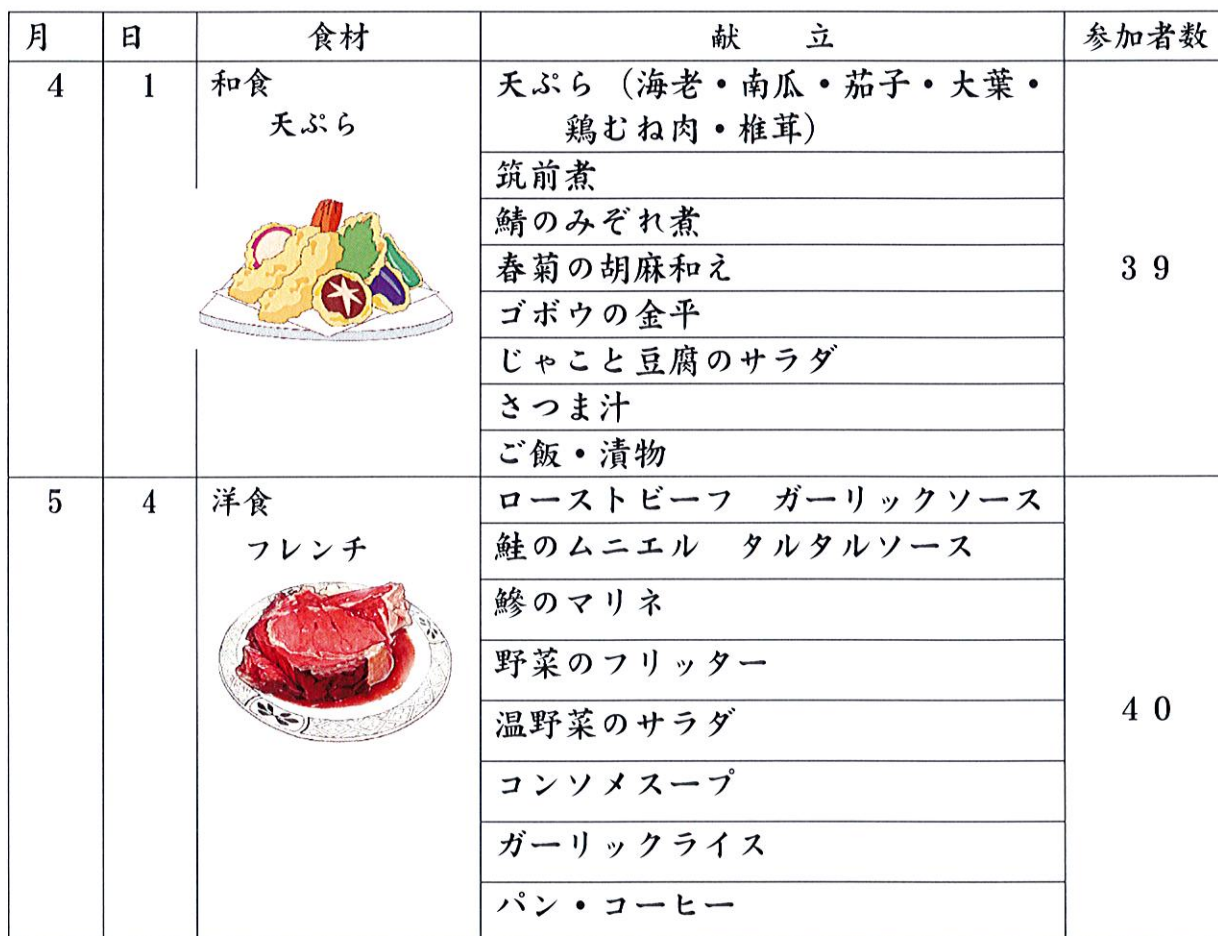 月 日 食材 献 立 参加者数
4 1 和食 天ぷら（海老・南瓜・茄子・大葉・
天ぷら 鶏むね肉・椎茸）
筑前煮
鯖のみぞれ煮
春菊の胡麻和え
39
ゴボウの金平
じゃこと豆腐のサラダ
さつま汁
ご飯・漬物
5 4 洋食 ローストビーフ ガーリックソース
フレンチ 鮭のムニエル タルタルソース
鯵のマリネ
野菜のフリッター
温野菜のサラダ
40
コンソメスープ
ガーリックライス
パン・コーヒー